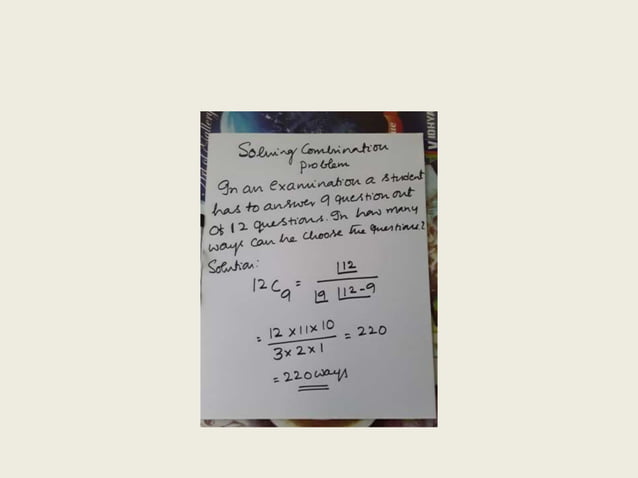 VIDHYA
Solving Combination
problem
In an examination a student
has to answer 9 question out
Of 12 questions. In how many
ways can he choose the questions?
Solution:
12C9 = |12
|9 |12-9
= 12 x 11 x 10 = 220
3 x 2 x 1
= 220 ways